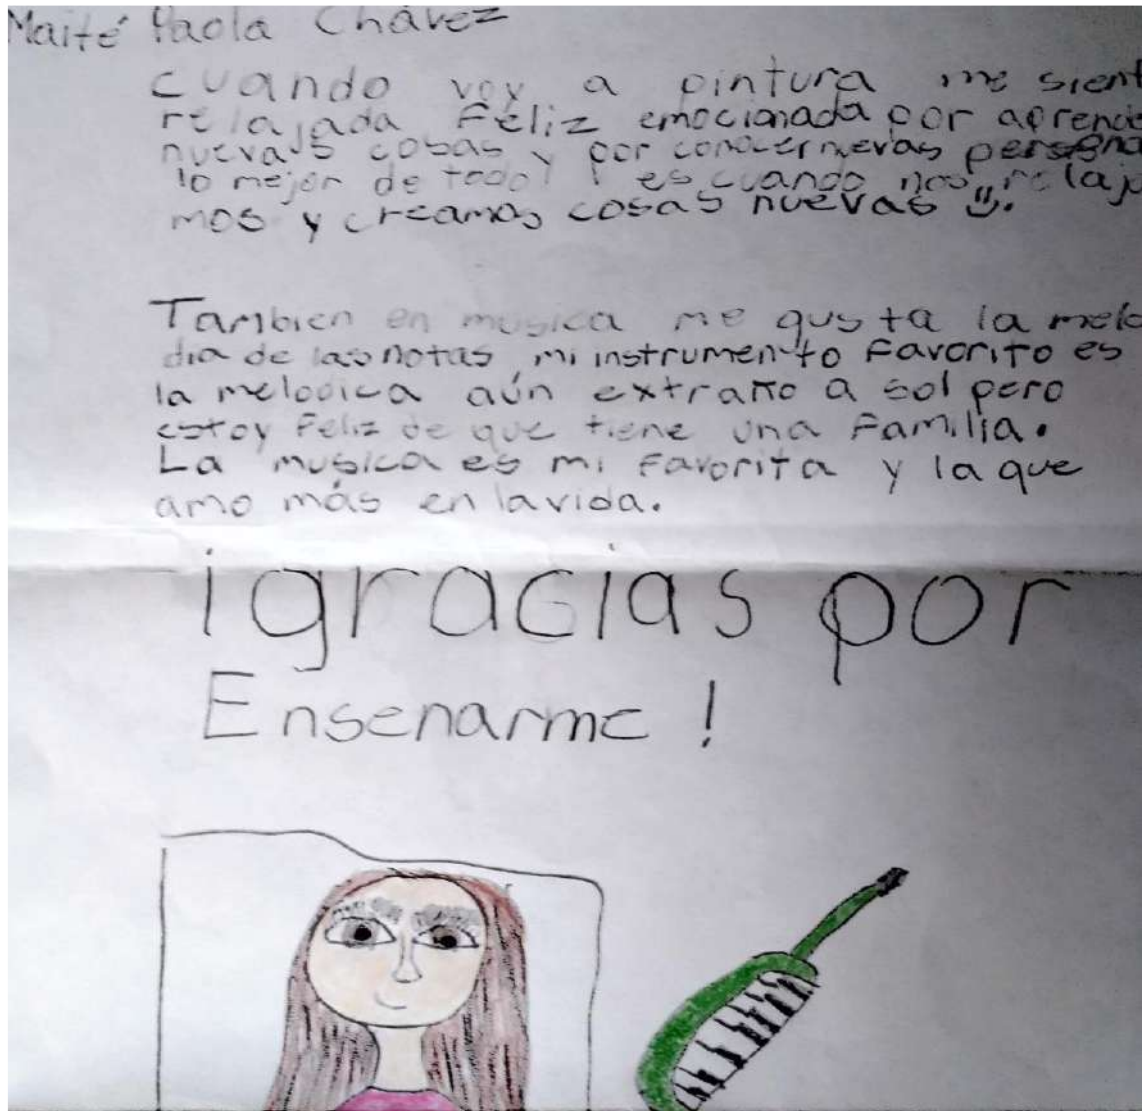 Maité Paola Chávez
cuando voy a pintura me sient
relajada Feliz emocionada por aprende
nuevas cosas y por conocer nuevas persona
lo mejor de todo! es cuando nos relaja
mos y creamos cosas nuevas
Tambien en musica me gusta la melo
dia de las notas, mi instrumento Favorito es
la melodica aún extraño a sol pero
estoy Feliz de que tiene una Familia.
La musica es mi Favorita y la que
amo más en la vida.
¡gracias por
Ensenarme!